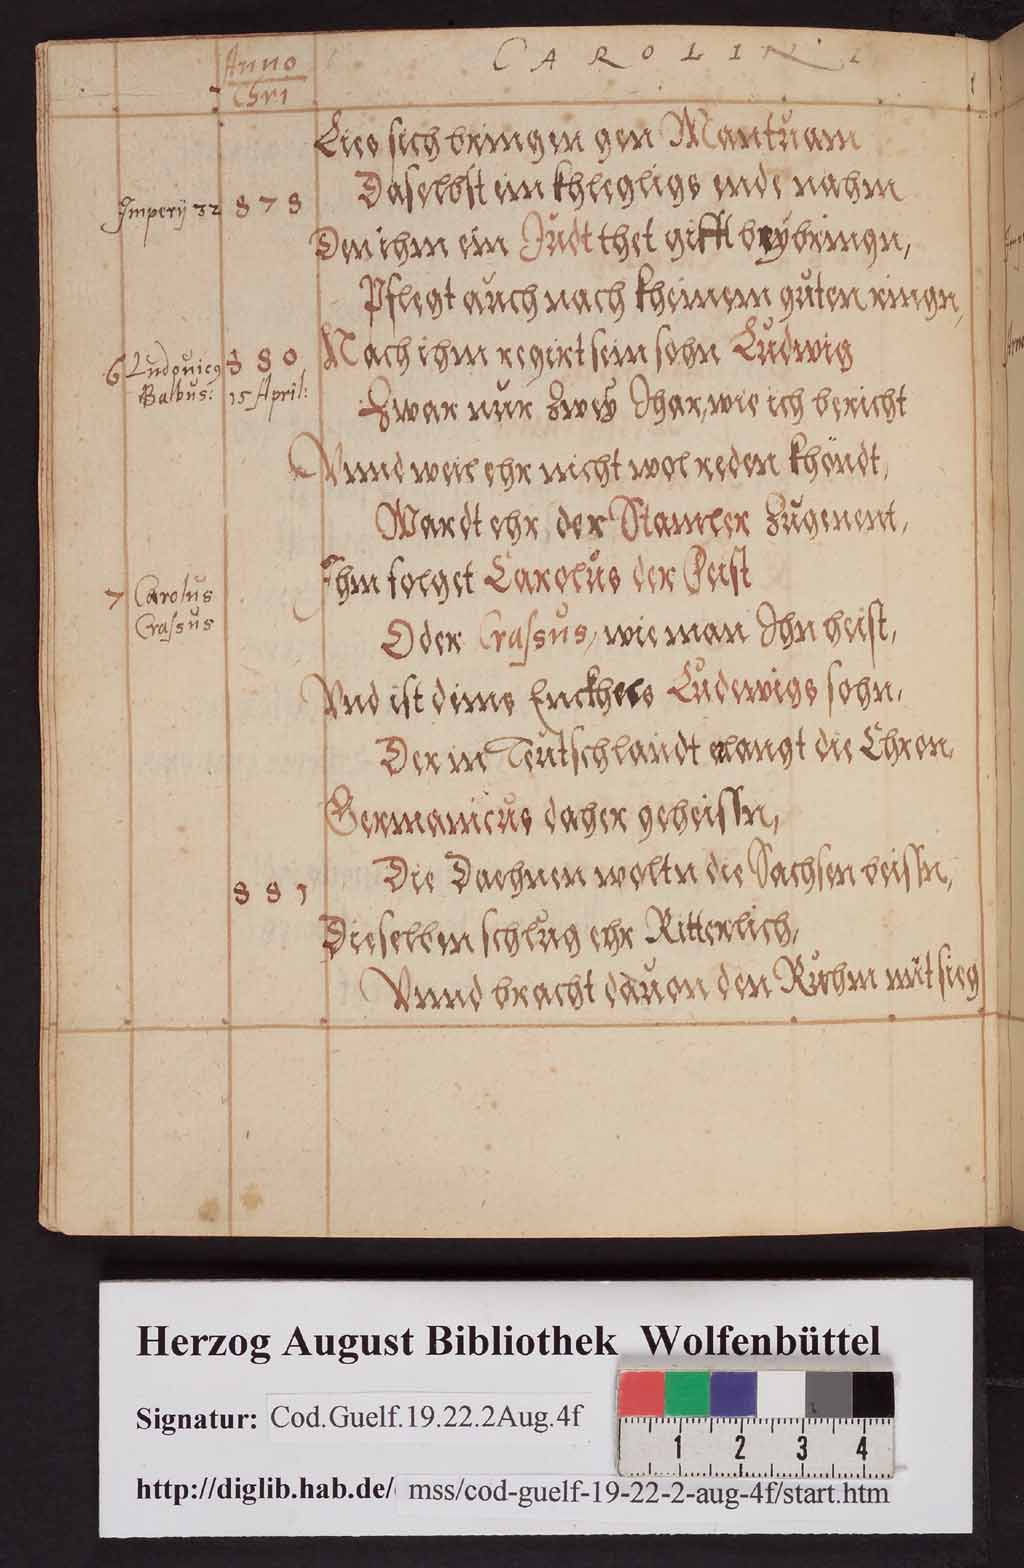 Anno
Chri
CAROLINI
Lies sich bringen gen Mantuam
Daselbst ein khlegligs ende nahm
Imperij 32 878
Den ihm ein Judt thet gifft beybringn,
Pflegt auch nach kheinem guten ringn,
Nach ihm regirt sein sohn Ludwig
6 Ludouicus 880
Balbus: 15 April:
Zwar nur zwey Jhar, wie ich bericht
Vnnd weil ehr nicht wol reden khöndt,
Wardt ehr der Stamler zugenent,
Ihm folget Carolus der Feist
7 Carolus
Crassus
Oder Crassus, wie man Ihn heist,
Vnd ist deins Enckhels Ludewigs sohn,
Der in Teutschlandt erlangt die Chron,
Germanicus daher geheissn,
Die Daehnen woltn die Sachsen beissn,
881
Dieselben schlug ehr Ritterlich,
Vnnd bracht dauon den Ruhm mit sieg
Herzog August Bibliothek Wolfenbüttel
Signatur: Cod.Guelf.19.22.2Aug.4f
1 2 3 4
http://diglib.hab.de/ mss/cod-guelf-19-22-2-aug-4f/start.htm